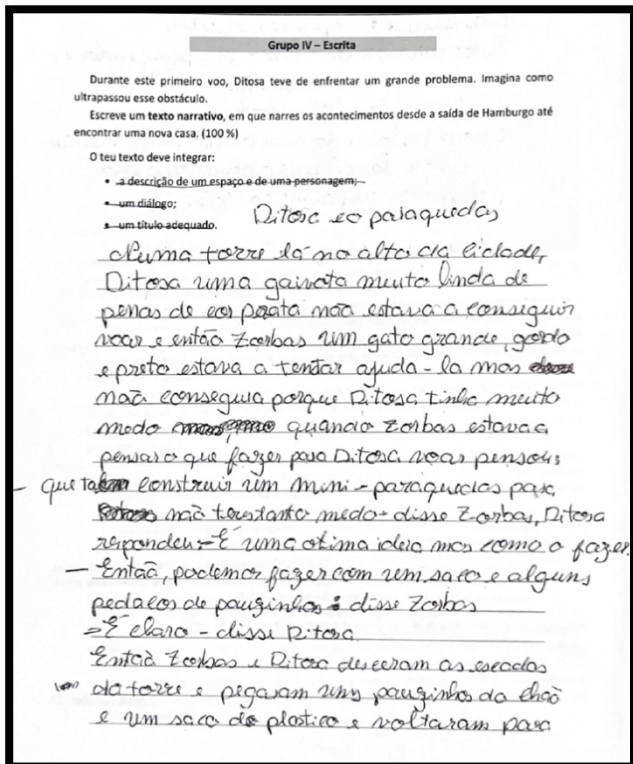 Grupo IV – Escrita
Durante este primeiro voo, Ditosa teve de enfrentar um grande problema. Imagina como
ultrapassou esse obstáculo.
Escreve um texto narrativo, em que narres os acontecimentos desde a saída de Hamburgo até
encontrar uma nova casa. (100 %)
O teu texto deve integrar:
• a descrição de um espaço e de uma personagem;
• um diálogo;
• um título adequado.
Ditosa eo paraquedas
Numa torre lá no alto da cidade,
Ditosa uma gaivota muito linda de
penas de cor prata não estava a conseguir
voar e então Zorbas um gato grande, gordo
e preto estava a tentar ajuda-la mas
não conseguia porque Ditosa tinha muito
medo quando Zorbas estava a
pensar o que fazer para Ditosa voar pensou:
– que tal construir um mini-paraquedas para
não teres tanto medo - disse Zorbas, Ditosa
respondeu:-É uma otima ideia mas como o fazer.
— Então, podemos fazer com um saco e alguns
pedaços de pauzinhos - disse Zorbas
-É claro - disse Ditosa
Então Zorbas e Ditosa desceram as escadas
da torre e pegaram uns pauzinhos do chão
e um saco de plastico e voltaram para